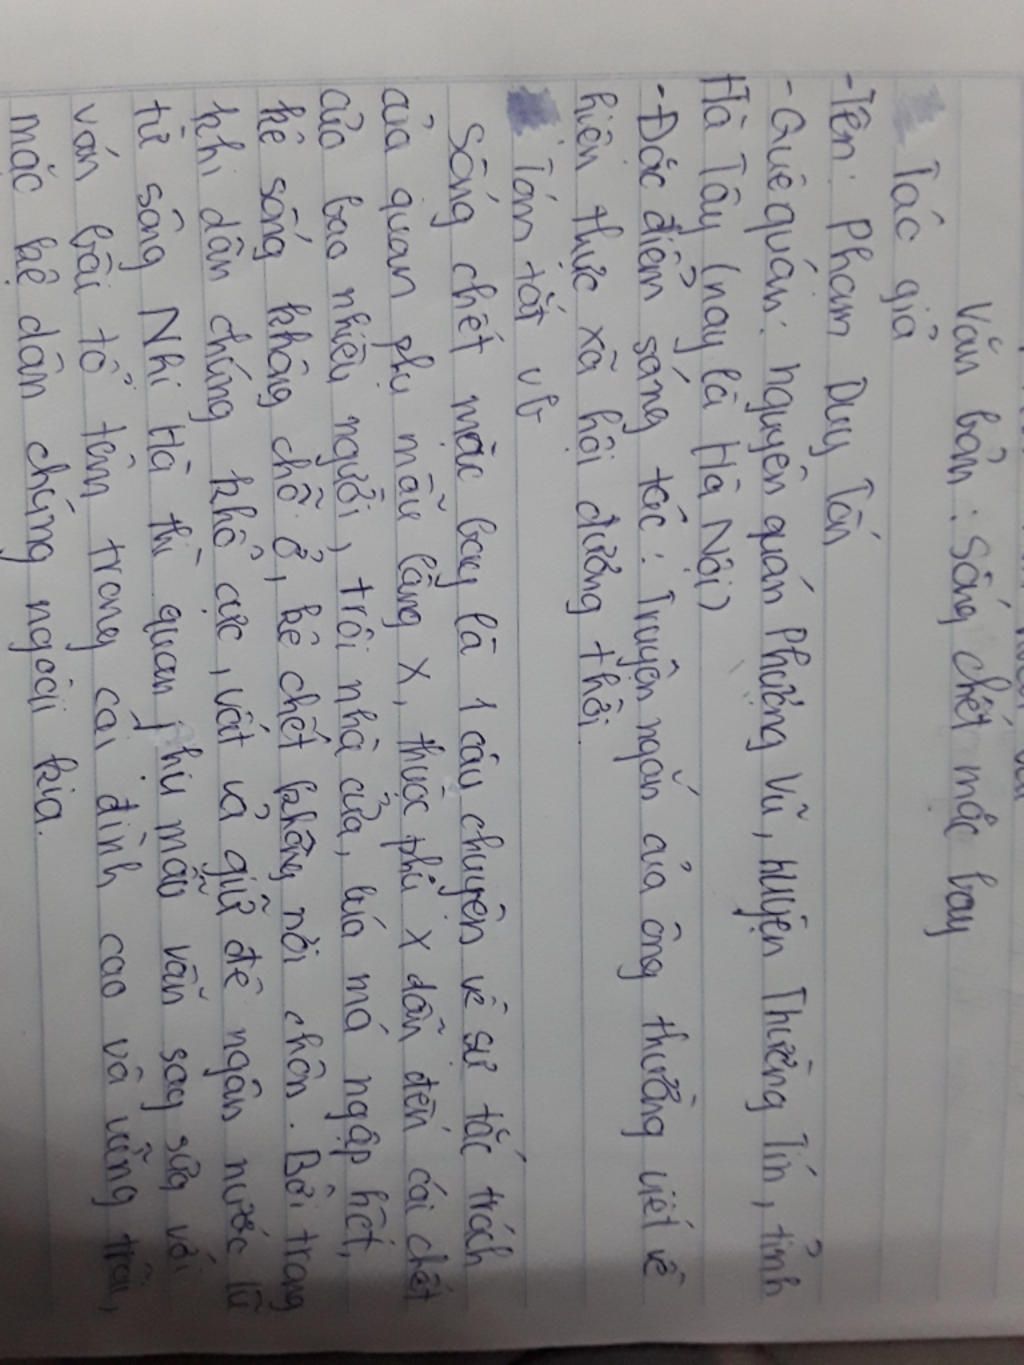 Văn bản: Sống chết mặc bay
Tác giả
- Tên: Phạm Duy Tốn
- Quê quán: nguyên quán Phượng Vũ, huyện Thường Tín, tỉnh
Hà Tây (nay là Hà Nội)
- Đặc điểm sáng tác: Truyện ngắn của ông thường viết về
hiện thực xã hội đương thời.
Tóm tắt vb
Sống chết mặc bay là 1 câu chuyện về sự tắc trách
của quan phụ mẫu làng X, thuộc phủ X dẫn đến cái chết
của bao nhiều người, trôi nhà cửa, lúa má ngập hết,
kẻ sống không chỗ ở, kẻ chết không nơi chôn. Bởi trong
khi dân chúng khổ cực, vất vả giữ đê ngăn nước lũ
từ sông Nhị Hà thì quan phụ mẫu vẫn say sưa với
ván bài tổ tôm trong cái đình cao và vững trãi,
mặc kệ dân chúng ngoài kia.